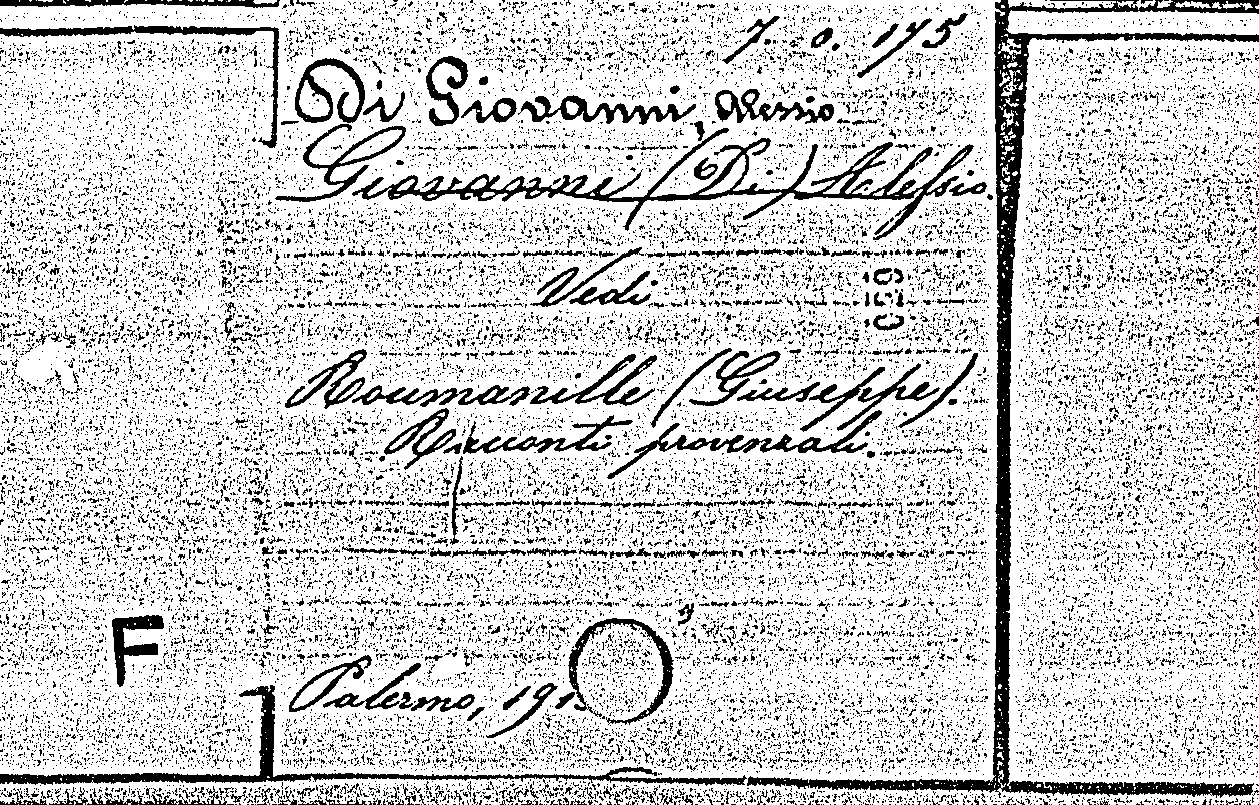 7. o. 175
Di Giovanni, Alessio
Giovanni (Di) Alessio.
Vedi
Roumanille (Giuseppe).
Racconti provenzali.
F
Palermo, 191